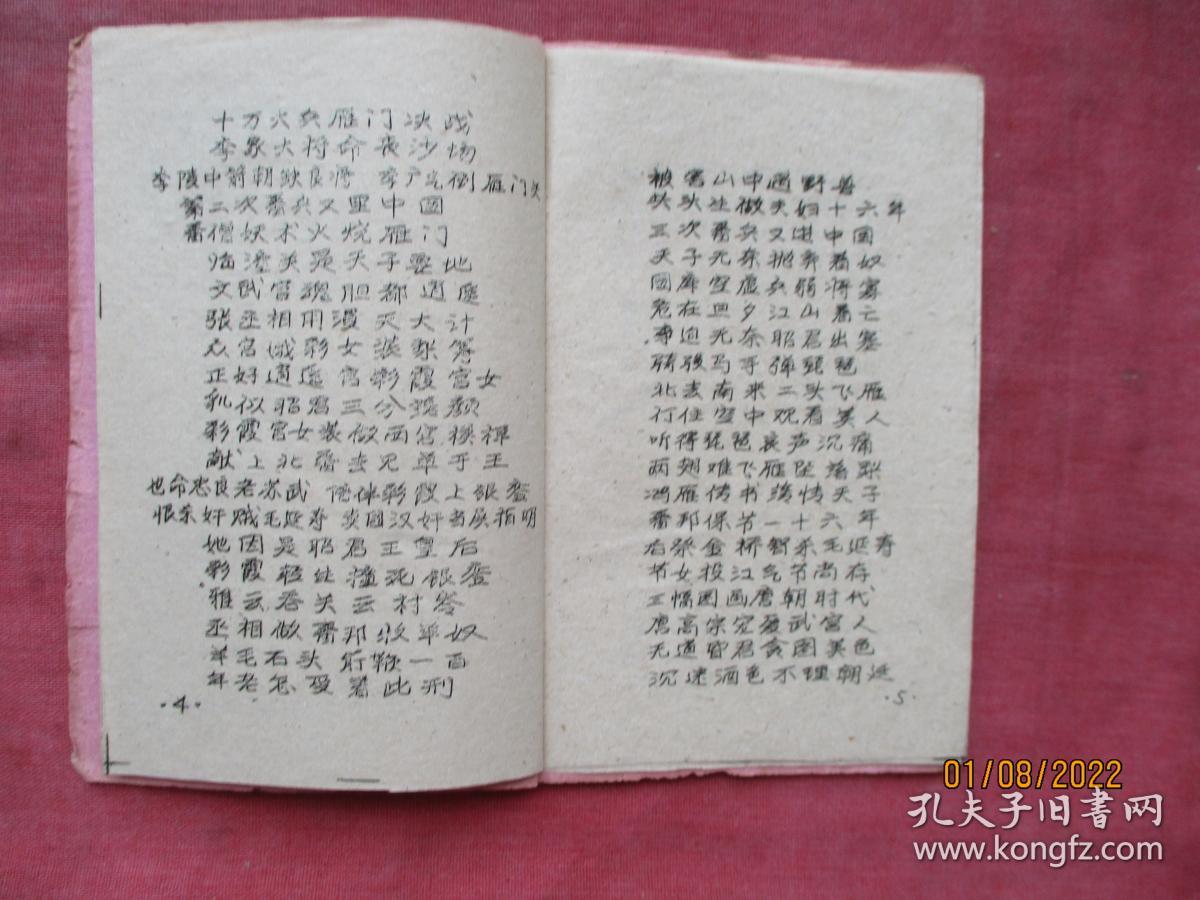 十万火兵雁门决战
李家大将命丧沙场
李陵中箭朝缺良将 李广气倒雁门关
第二次番兵又里中国
番僧妖术火烧雁门
临潼关逼天子要地
文武官魂胆都逍遥
张丞相用漫天大计
众宫娥彩女装梨等
正好逍遥宫彩霞宫女
乳似昭君三分琇颜
彩霞宫女装做西宫模样
献上北番去见单于王
也命忠良老苏武 陪伴彩霞上银銮
恨杀奸贼毛延寿 卖国汉奸当侯指明
她因是昭君王皇后
彩霞轻生 撞死银銮
雅云吞关云村
丞相做番邦收羊奴
羊毛石头 箭鞭一百
年老怎受着此刑
·4·
被害山中遇野兽
做夫妇十六年
三次番兵又进中国
天子无奈抛弃番奴
国库空虚兵弱将寡
危在旦夕江山番亡
事迫无奈昭君出塞
骑骏马手弹琵琶
北去南来二头飞雁
停住空中观看美人
听得琵琶哀声沉痛
两翅难飞雁坠落
鸿雁传书 情天子
番邦保节一十六年
后祭金桥智杀毛延寿
节女投江气节尚存
三幅图画唐朝时代
唐高宗定爱武宫人
无道昏君贪图美色
沉迷酒色不理朝廷
·5·
01/08/2022
孔夫子旧书网
www.kongfz.com